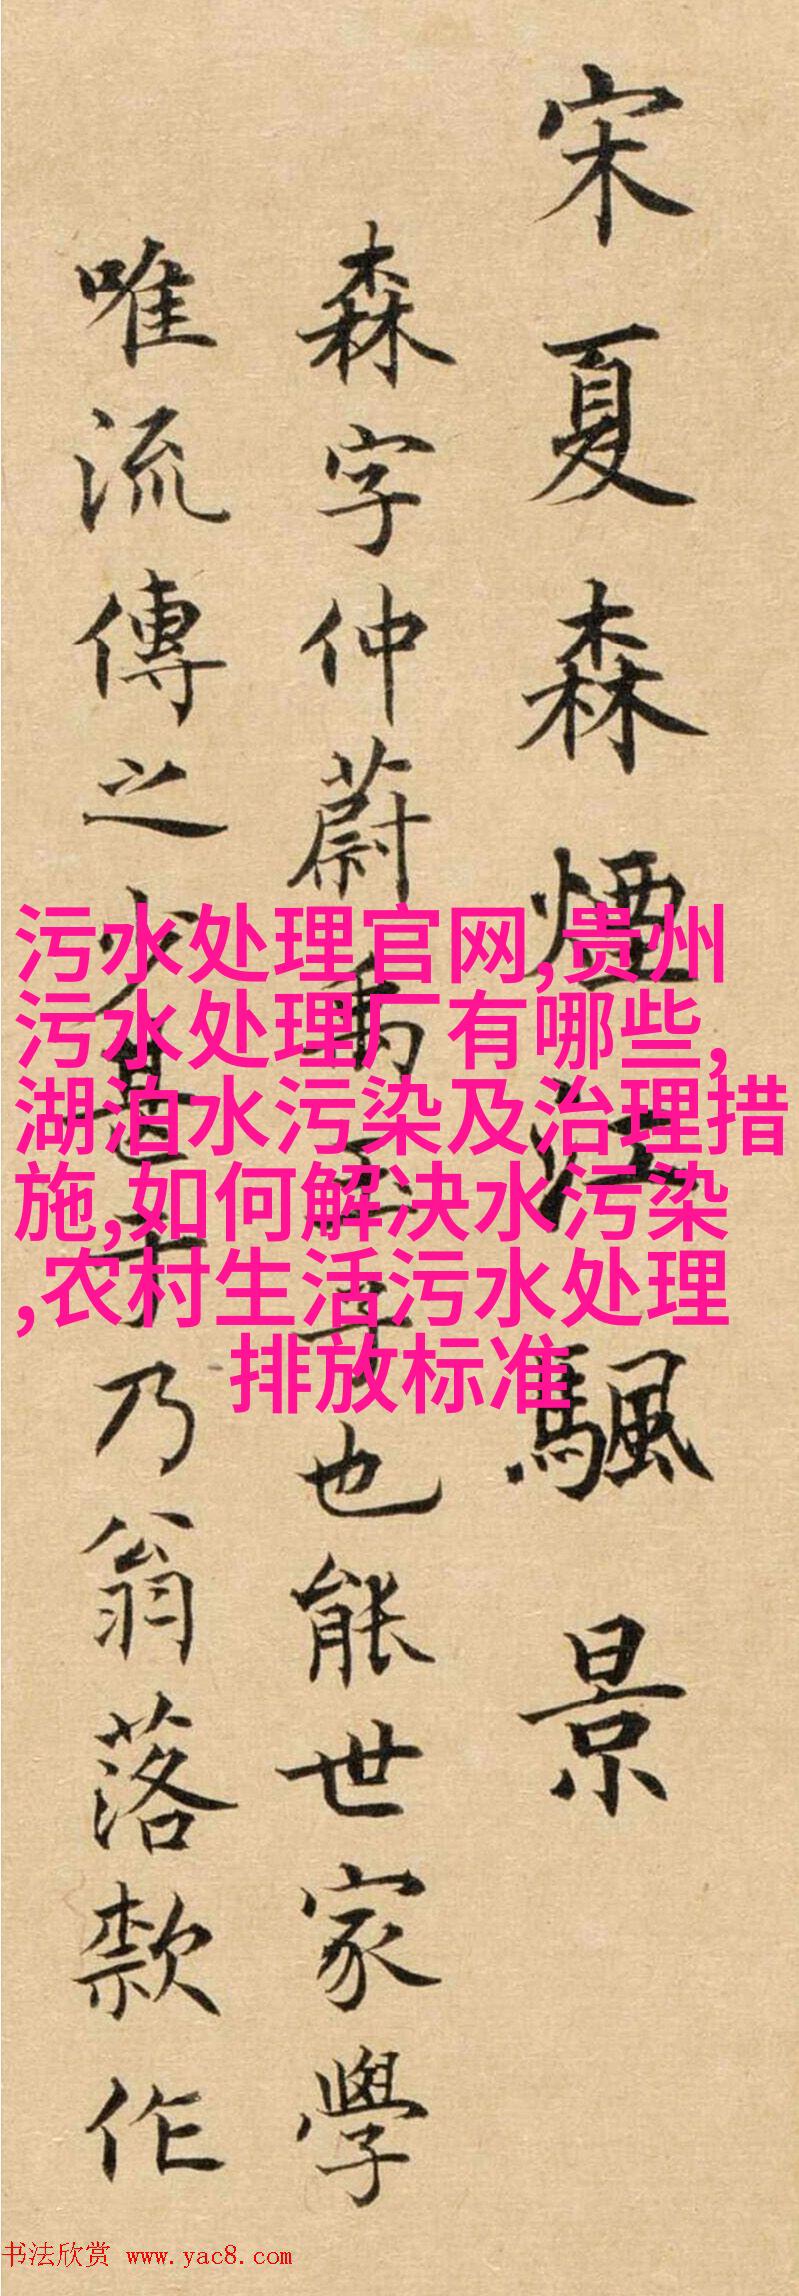 宋夏森煙江颿景
森字仲蔚禹玉子也能世家學
唯流傳之少甚予乃翁落款作
污水处理官网,贵州
污水处理厂有哪些,
湖泊水污染及治理措
施,如何解决水污染
,农村生活污水处理
排放标准
书法欣赏 www.yac8.com